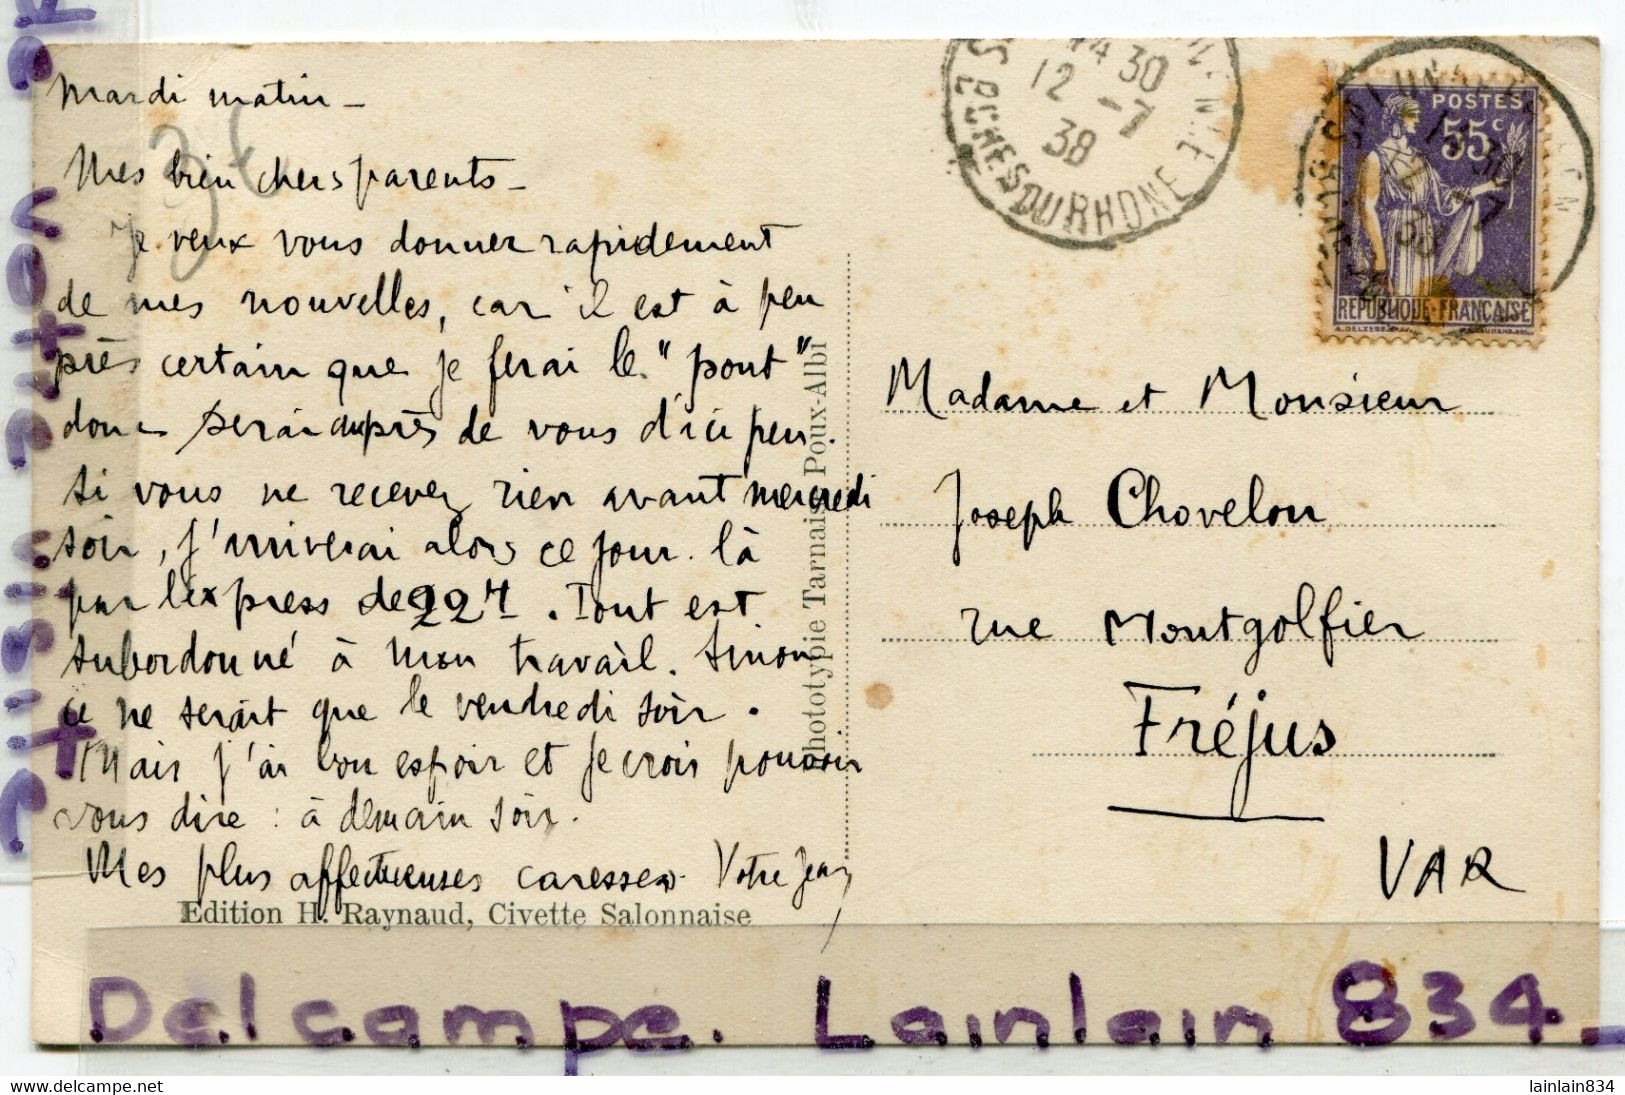 Mardi matin -
Mes bien chers parents -
Je veux vous donner rapidement
de mes nouvelles, car il est à peu
près certain que je ferai le "pont"
donc serai auprès de vous d'ici peu.
Si vous ne recevez rien avant mercredi
soir, j'arriverai alors ce jour-là
par l'express de 22h. Tout est
subordonné à mon travail. Sinon
ce ne serait que le vendredi soir.
Mais j'ai bon espoir et je crois pouvoir
vous dire : à demain soir.
Mes plus affectueuses caresses. Votre Jean
Edition H. Raynaud, Civette Salonnaise
Phototypie Tarnaise Poux-Albi
30
12 -7
38
BCHES DU RHONE
POSTES
55c
REPUBLIQUE-FRANÇAISE
Madame et Monsieur
Joseph Chovelon
rue Montgolfier
Fréjus
VAR
Delcampe. Lainlain 834
delcampe.net
lainlain834